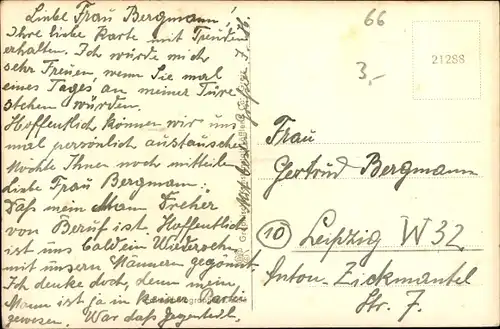 Liebe Frau Bergmann!
Ihre liebe Karte mit Freuden
erhalten. Ich würde mich
sehr Freuen, wenn Sie mal
eines Tages an meiner Türe
stehen würden.
Hoffentlich können wir uns
mal persönlich austauschen
Möchte Ihnen noch mitteilen
Liebe Frau Bergmann.
Daß mein Mann Dreher
von Beruf ist. Hoffentlich
ist uns bald ein Wiedersehn
mit unsern Männern gegönnt.
Ich denke doch, denn mein
Mann ist ja in keiner Partei
gewesen. War daß
66
3,-
21288
Frau
Gertrud Bergmann
(10) Leipzig W 32
Anton-Zickmantel
Str. 7.